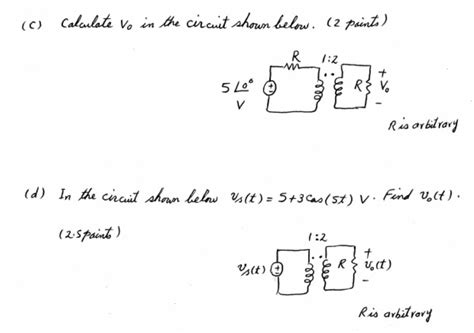 (c) Calculate Vo in the circuit shown below. (2 points)
R 1:2
5∠0° + - R + Vo -
V
R is arbitrary
(d) In the circuit shown below vs(t) = 5+3cos(5t) V. Find vo(t).
(2.5 points)
1:2
vs(t) + - R + vo(t) -
R is arbitrary